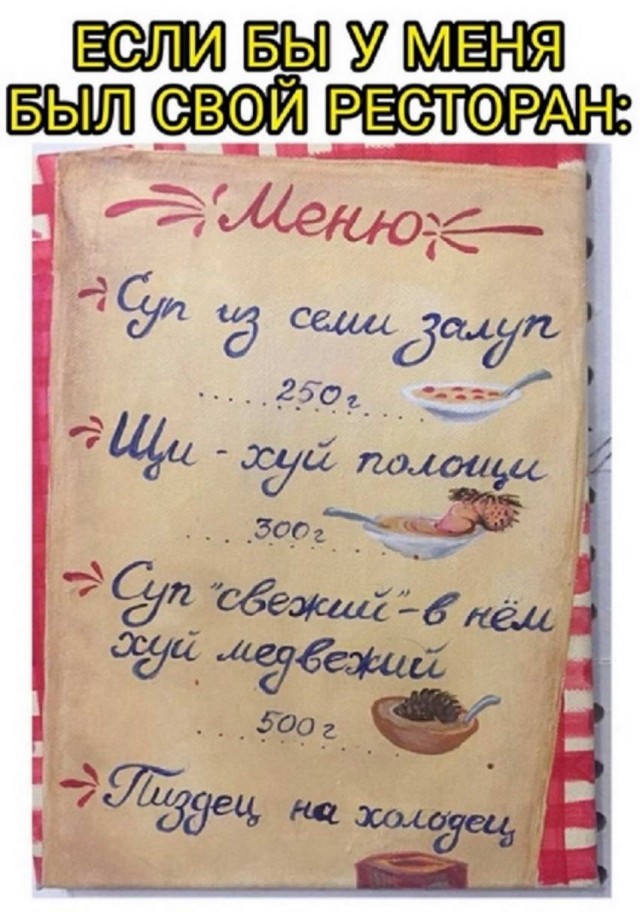 ЕСЛИ БЫ У МЕНЯ
БЫЛ СВОЙ РЕСТОРАН:
Меню
Суп из семи залуп
.....250г....
Щи - хуй полощи
....300г....
Суп "свежий" - в нём
хуй медвежий
....500г....
Пиздец на холодец